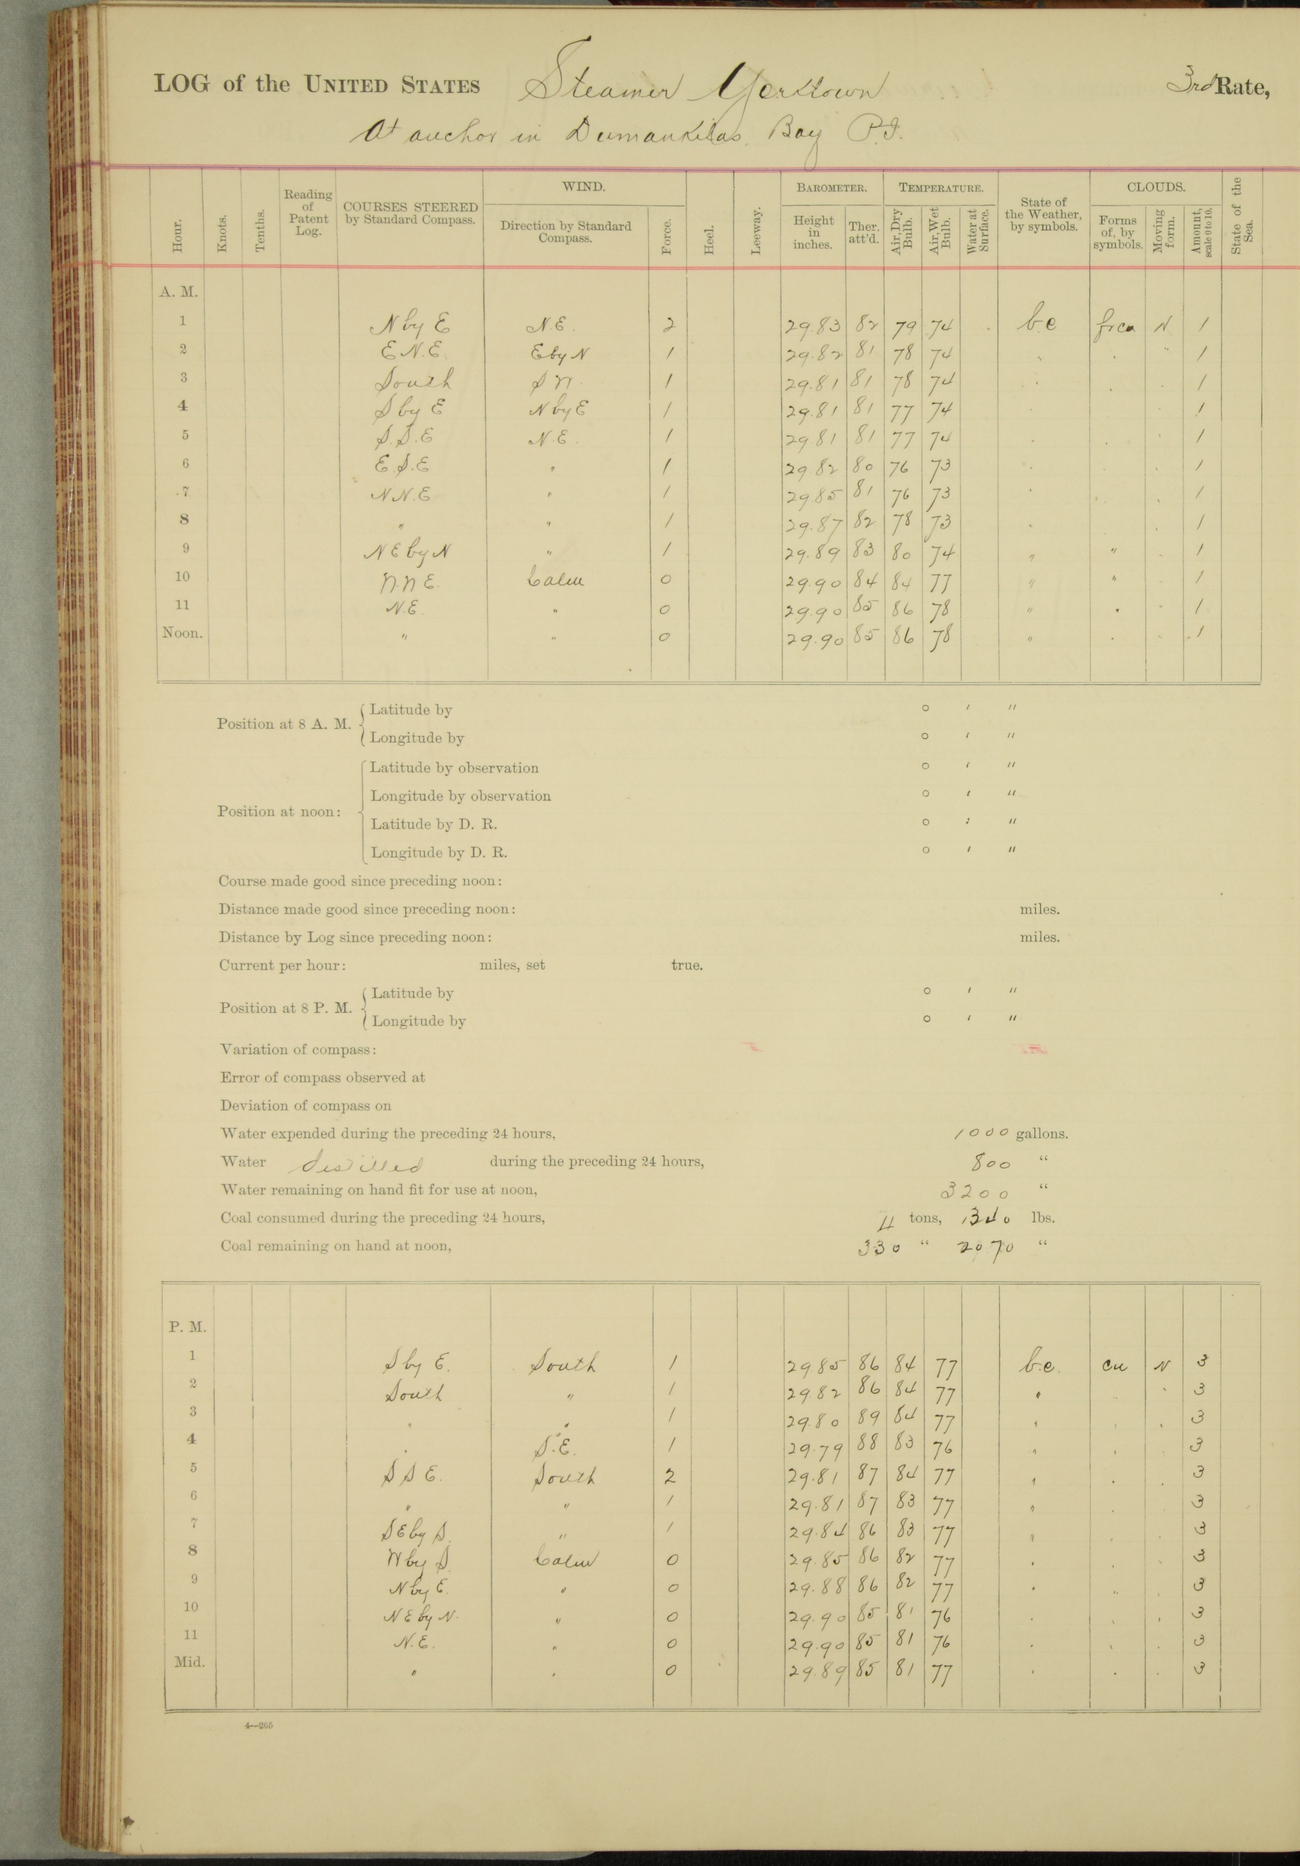 LOG of the UNITED STATES Steamer Yorktown 3rd Rate,
At anchor in Dumankilas Bay P.I.
Hour. Knots. Tenths. Reading of Patent Log. COURSES STEERED by Standard Compass. WIND. Direction by Standard Compass. Force. Heel. Leeway. BAROMETER. Height in inches. Ther. att'd. TEMPERATURE. Air, Dry Bulb. Air, Wet Bulb. Water at Surface. State of the Weather, by symbols. CLOUDS. Forms of, by symbols. Moving form. Amount, scale 0 to 10. State of the Sea.
A. M.
1 N by E N.E. 2 29.83 82 79 74 b.c frcu N 1
2 E N.E. E by N 1 29.82 81 78 74 " " " 1
3 South S W. 1 29.81 81 78 74 " " " 1
4 S by E N by E 1 29.81 81 77 74 " " " 1
5 S.S.E N.E. 1 29.81 81 77 74 " " " 1
6 E.S.E " 1 29.82 80 76 73 " " " 1
7 N.N.E " 1 29.85 81 76 73 " " " 1
8 " " 1 29.87 82 78 73 " " " 1
9 N E by N " 1 29.89 83 80 74 " " " 1
10 N N E. Calm 0 29.90 84 84 77 " " " 1
11 N.E. " 0 29.90 85 86 78 " " " 1
Noon. " " 0 29.90 85 86 78 " " " 1
Position at 8 A. M. { Latitude by ° ′ ″
Longitude by ° ′ ″
Position at noon: { Latitude by observation ° ′ ″
Longitude by observation ° ′ ″
Latitude by D. R. ° ′ ″
Longitude by D. R. ° ′ ″
Course made good since preceding noon:
Distance made good since preceding noon: miles.
Distance by Log since preceding noon: miles.
Current per hour: miles, set true.
Position at 8 P. M. { Latitude by ° ′ ″
Longitude by ° ′ ″
Variation of compass:
Error of compass observed at
Deviation of compass on
Water expended during the preceding 24 hours, 1000 gallons.
Water distilled during the preceding 24 hours, 800 "
Water remaining on hand fit for use at noon, 3200 "
Coal consumed during the preceding 24 hours, 4 tons, 1340 lbs.
Coal remaining on hand at noon, 330 " 2070 "
P. M.
1 S by E. South 1 29.85 86 84 77 b.c. cu N 3
2 South " 1 29.82 86 84 77 " " " 3
3 " " 1 29.80 89 84 77 " " " 3
4 " S.E. 1 29.79 88 83 76 " " " 3
5 S S E. South 2 29.81 87 84 77 " " " 3
6 " " 1 29.81 87 83 77 " " " 3
7 S E by S. " 1 29.84 86 83 77 " " " 3
8 W by S. Calm 0 29.85 86 82 77 " " " 3
9 N by E. " 0 29.88 86 82 77 " " " 3
10 N E by N. " 0 29.90 85 81 76 " " " 3
11 N.E. " 0 29.90 85 81 76 " " " 3
Mid. " " 0 29.89 85 81 77 " " " 3
4—265